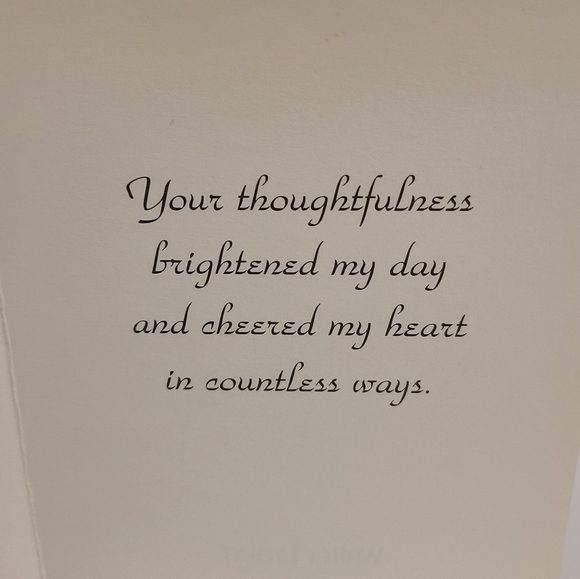 Your thoughtfulness
brightened my day
and cheered my heart
in countless ways.